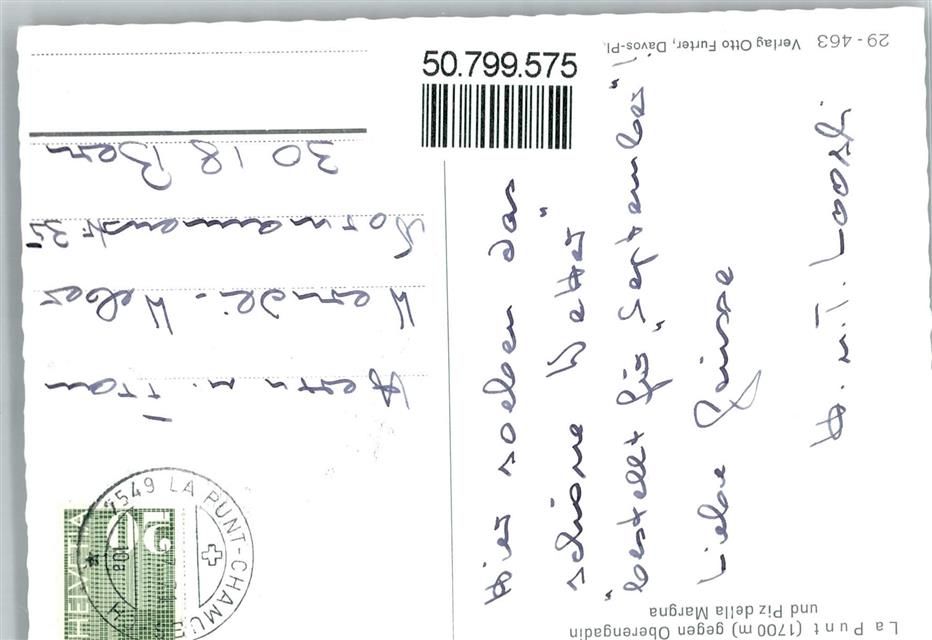 La Punt (1700 m) gegen Oberengadin
und Piz della Margna
29 - 463 Verlag Otto Furter, Davos-Pl.
50.799.575
Hier soeben das
schöne Wetter"
"bestellt für „September"!
Liebe Grüsse
H. u. T. Loosli
Herrn u. Frau
Weber
Normannenstr. 35
3018 Bern
HELVETIA
50
7549 LA PUNT-CHAMUES